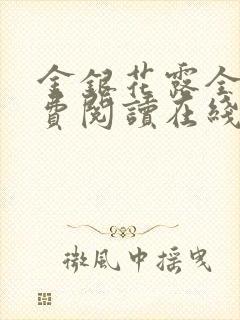 金銀花露全
費閱讀在綫
微風中摇曳